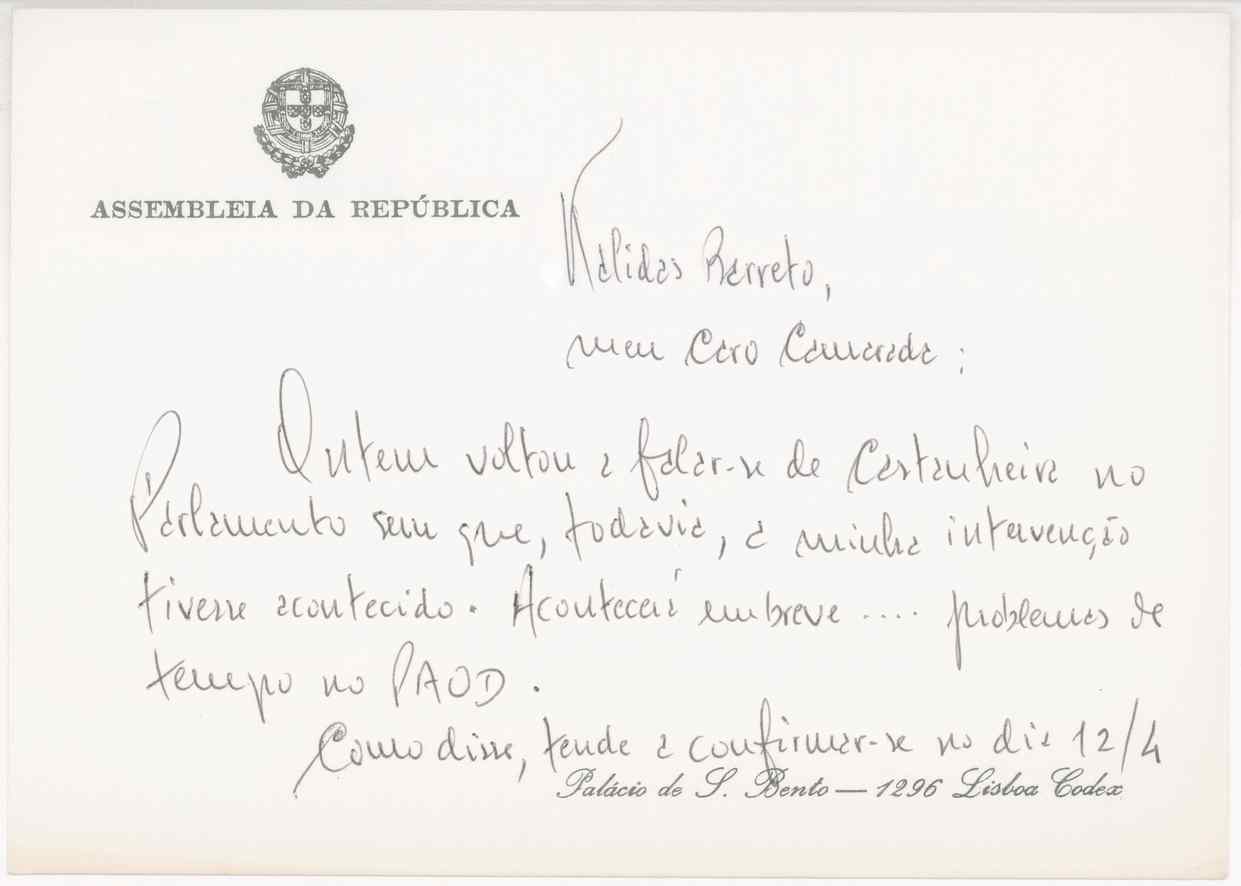 ASSEMBLEIA DA REPÚBLICA
Kalidas Barreto,
meu Caro Camarada;
Ontem voltou a falar-se de Castanheira no
Parlamento sem que, todavia, a minha intervenção
tivesse acontecido. Acontecerá em breve .... problemas de
tempo no PAOD.
Como disse, tende a confirmar-se no dia 12/4
Palácio de S. Bento — 1296 Lisboa Codex